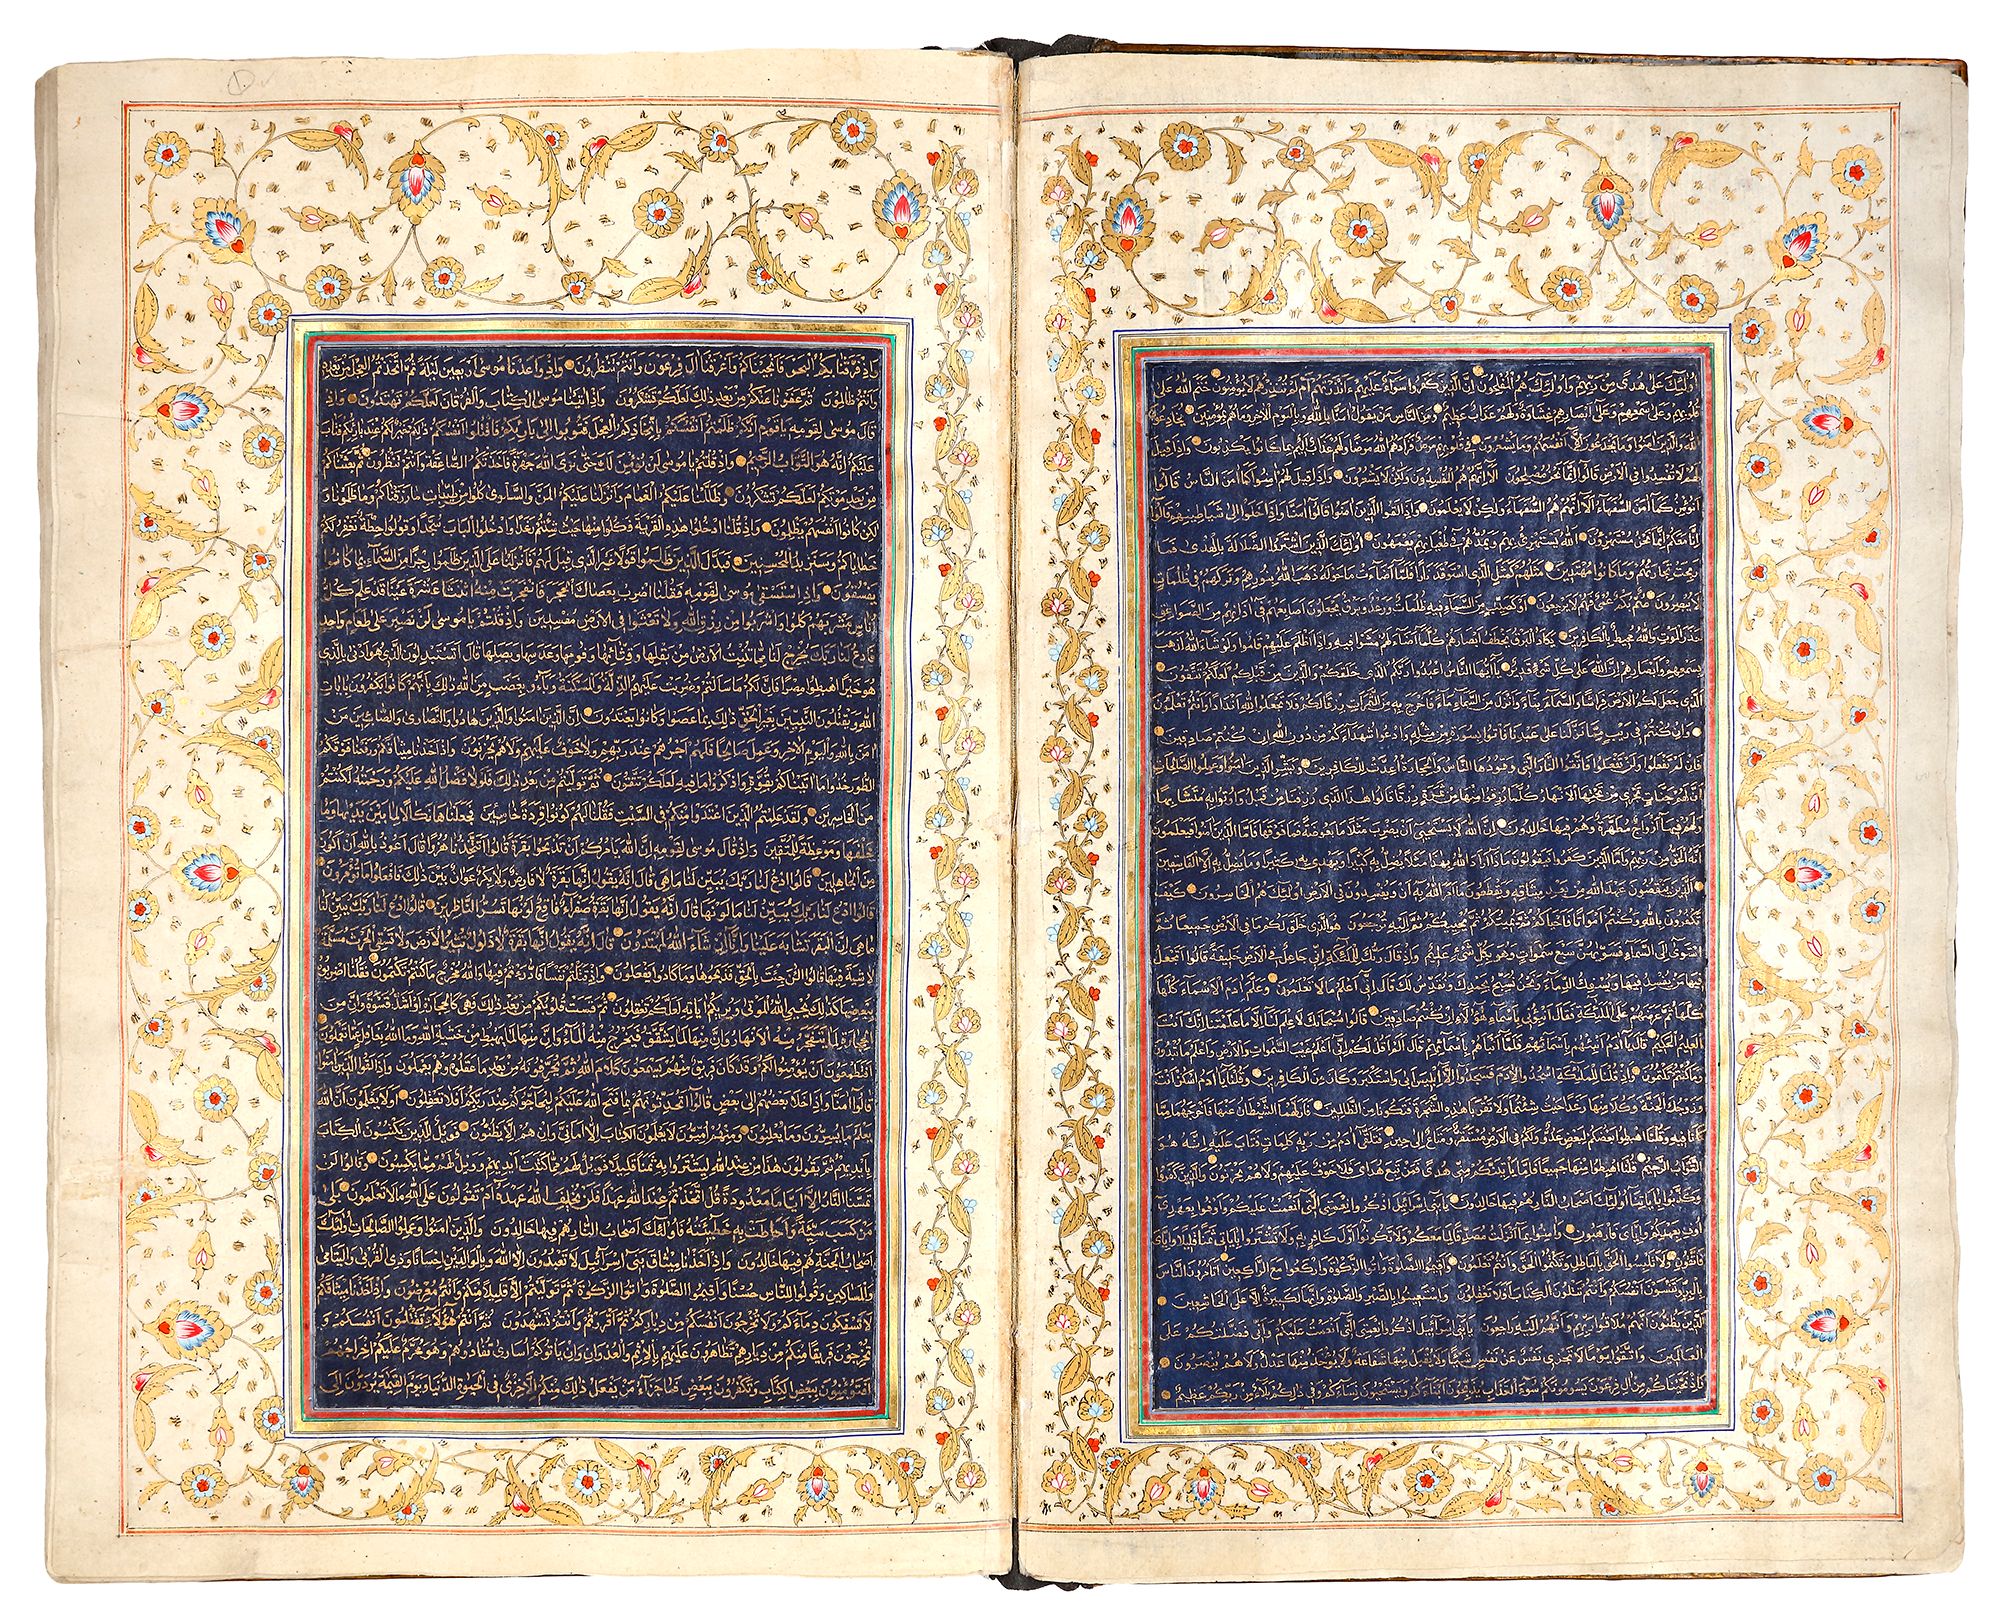 أولئك على هدى من ربهم وأولئك هم المفلحون إن الذين كفروا سواء عليهم أأنذرتهم أم لم تنذرهم لا يؤمنون ختم الله على
قلوبهم وعلى سمعهم وعلى أبصارهم غشاوة ولهم عذاب عظيم ومن الناس من يقول آمنا بالله وباليوم الآخر وما هم بمؤمنين يخادعون
الله والذين آمنوا وما يخدعون إلا أنفسهم وما يشعرون في قلوبهم مرض فزادهم الله مرضا ولهم عذاب أليم بما كانوا يكذبون وإذا قيل
لهم لا تفسدوا في الأرض قالوا إنما نحن مصلحون ألا إنهم هم المفسدون ولكن لا يشعرون وإذا قيل لهم آمنوا كما آمن الناس قالوا
أنؤمن كما آمن السفهاء ألا إنهم هم السفهاء ولكن لا يعلمون وإذا لقوا الذين آمنوا قالوا آمنا وإذا خلوا إلى شياطينهم قالوا
إنا معكم إنما نحن مستهزؤن الله يستهزئ بهم ويمدهم في طغيانهم يعمهون أولئك الذين اشتروا الضلالة بالهدى فما
ربحت تجارتهم وما كانوا مهتدين مثلهم كمثل الذي استوقد نارا فلما أضاءت ما حوله ذهب الله بنورهم وتركهم في ظلمات
لا يبصرون صم بكم عمي فهم لا يرجعون أو كصيب من السماء فيه ظلمات ورعد وبرق يجعلون أصابعهم في آذانهم من الصواعق
حذر الموت والله محيط بالكافرين يكاد البرق يخطف أبصارهم كلما أضاء لهم مشوا فيه وإذا أظلم عليهم قاموا ولو شاء الله لذهب
بسمعهم وأبصارهم إن الله على كل شيء قدير يا أيها الناس اعبدوا ربكم الذي خلقكم والذين من قبلكم لعلكم تتقون
الذي جعل لكم الأرض فراشا والسماء بناء وأنزل من السماء ماء فأخرج به من الثمرات رزقا لكم فلا تجعلوا لله أندادا وأنتم تعلمون
وإن كنتم في ريب مما نزلنا على عبدنا فأتوا بسورة من مثله وادعوا شهداءكم من دون الله إن كنتم صادقين
فإن لم تفعلوا ولن تفعلوا فاتقوا النار التي وقودها الناس والحجارة أعدت للكافرين وبشر الذين آمنوا وعملوا الصالحات
أن لهم جنات تجري من تحتها الأنهار كلما رزقوا منها من ثمرة رزقا قالوا هذا الذي رزقنا من قبل وأوتوا به متشابها
ولهم فيها أزواج مطهرة وهم فيها خالدون إن الله لا يستحيي أن يضرب مثلا ما بعوضة فما فوقها فأما الذين آمنوا فيعلمون
أنه الحق من ربهم وأما الذين كفروا فيقولون ماذا أراد الله بهذا مثلا يضل به كثيرا ويهدي به كثيرا وما يضل به إلا الفاسقين
الذين ينقضون عهد الله من بعد ميثاقه ويقطعون ما أمر الله به أن يوصل ويفسدون في الأرض أولئك هم الخاسرون كيف
تكفرون بالله وكنتم أمواتا فأحياكم ثم يميتكم ثم يحييكم ثم إليه ترجعون هو الذي خلق لكم ما في الأرض جميعا ثم
استوى إلى السماء فسويهن سبع سموات وهو بكل شيء عليم وإذ قال ربك للملئكة إني جاعل في الأرض خليفة قالوا أتجعل
فيها من يفسد فيها ويسفك الدماء ونحن نسبح بحمدك ونقدس لك قال إني أعلم ما لا تعلمون وعلم آدم الأسماء كلها
ثم عرضهم على الملئكة فقال أنبئوني بأسماء هؤلاء إن كنتم صادقين قالوا سبحانك لا علم لنا إلا ما علمتنا إنك أنت
العليم الحكيم قال يا آدم أنبئهم بأسمائهم فلما أنبأهم بأسمائهم قال ألم أقل لكم إني أعلم غيب السموات والأرض وأعلم ما تبدون
وما كنتم تكتمون وإذ قلنا للملئكة اسجدوا لآدم فسجدوا إلا إبليس أبى واستكبر وكان من الكافرين وقلنا يا آدم اسكن أنت
وزوجك الجنة وكلا منها رغدا حيث شئتما ولا تقربا هذه الشجرة فتكونا من الظالمين فأزلهما الشيطان عنها فأخرجهما مما
كانا فيه وقلنا اهبطوا بعضكم لبعض عدو ولكم في الأرض مستقر ومتاع إلى حين فتلقى آدم من ربه كلمات فتاب عليه إنه هو
التواب الرحيم قلنا اهبطوا منها جميعا فإما يأتينكم مني هدى فمن تبع هداي فلا خوف عليهم ولا هم يحزنون والذين كفروا
وكذبوا بآياتنا أولئك أصحاب النار هم فيها خالدون يا بني إسرائيل اذكروا نعمتي التي أنعمت عليكم وأوفوا بعهدي
أوف بعهدكم وإياي فارهبون وآمنوا بما أنزلت مصدقا لما معكم ولا تكونوا أول كافر به ولا تشتروا بآياتي ثمنا قليلا وإياي
فاتقون ولا تلبسوا الحق بالباطل وتكتموا الحق وأنتم تعلمون وأقيموا الصلوة وآتوا الزكوة واركعوا مع الراكعين أتأمرون الناس
بالبر وتنسون أنفسكم وأنتم تتلون الكتاب أفلا تعقلون واستعينوا بالصبر والصلوة وإنها لكبيرة إلا على الخاشعين
الذين يظنون أنهم ملاقوا ربهم وأنهم إليه راجعون يا بني إسرائيل اذكروا نعمتي التي أنعمت عليكم وأني فضلتكم على
العالمين واتقوا يوما لا تجزي نفس عن نفس شيئا ولا يقبل منها شفاعة ولا يؤخذ منها عدل ولا هم ينصرون
وإذ نجيناكم من آل فرعون يسومونكم سوء العذاب يذبحون أبناءكم ويستحيون نساءكم وفي ذلكم بلاء من ربكم عظيم
وإذ فرقنا بكم البحر فأنجيناكم وأغرقنا آل فرعون وأنتم تنظرون وإذ واعدنا موسى أربعين ليلة ثم اتخذتم العجل من بعده
وأنتم ظالمون ثم عفونا عنكم من بعد ذلك لعلكم تشكرون وإذ آتينا موسى الكتاب والفرقان لعلكم تهتدون وإذ
قال موسى لقومه يا قوم إنكم ظلمتم أنفسكم باتخاذكم العجل فتوبوا إلى بارئكم فاقتلوا أنفسكم ذلكم خير لكم عند بارئكم فتاب
عليكم إنه هو التواب الرحيم وإذ قلتم يا موسى لن نؤمن لك حتى نرى الله جهرة فأخذتكم الصاعقة وأنتم تنظرون ثم بعثناكم
من بعد موتكم لعلكم تشكرون وظللنا عليكم الغمام وأنزلنا عليكم المن والسلوى كلوا من طيبات ما رزقناكم وما ظلمونا و
لكن كانوا أنفسهم يظلمون وإذ قلنا ادخلوا هذه القرية فكلوا منها حيث شئتم رغدا وادخلوا الباب سجدا وقولوا حطة نغفر لكم
خطاياكم وسنزيد المحسنين فبدل الذين ظلموا قولا غير الذي قيل لهم فأنزلنا على الذين ظلموا رجزا من السماء بما كانوا
يفسقون وإذ استسقى موسى لقومه فقلنا اضرب بعصاك الحجر فانفجرت منه اثنتا عشرة عينا قد علم كل
أناس مشربهم كلوا واشربوا من رزق الله ولا تعثوا في الأرض مفسدين وإذ قلتم يا موسى لن نصبر على طعام واحد
فادع لنا ربك يخرج لنا مما تنبت الأرض من بقلها وقثائها وفومها وعدسها وبصلها قال أتستبدلون الذي هو أدنى بالذي
هو خير اهبطوا مصرا فإن لكم ما سألتم وضربت عليهم الذلة والمسكنة وباؤ بغضب من الله ذلك بأنهم كانوا يكفرون بآيات
الله ويقتلون النبيين بغير الحق ذلك بما عصوا وكانوا يعتدون إن الذين آمنوا والذين هادوا والنصارى والصابئين من
آمن بالله واليوم الآخر وعمل صالحا فلهم أجرهم عند ربهم ولا خوف عليهم ولا هم يحزنون وإذ أخذنا ميثاقكم ورفعنا فوقكم
الطور خذوا ما آتيناكم بقوة واذكروا ما فيه لعلكم تتقون ثم توليتم من بعد ذلك فلولا فضل الله عليكم ورحمته لكنتم
من الخاسرين ولقد علمتم الذين اعتدوا منكم في السبت فقلنا لهم كونوا قردة خاسئين فجعلناها نكالا لما بين يديها وما
خلفها وموعظة للمتقين وإذ قال موسى لقومه إن الله يأمركم أن تذبحوا بقرة قالوا أتتخذنا هزوا قال أعوذ بالله أن أكون
من الجاهلين قالوا ادع لنا ربك يبين لنا ما هي قال إنه يقول إنها بقرة لا فارض ولا بكر عوان بين ذلك فافعلوا ما تؤمرون
قالوا ادع لنا ربك يبين لنا ما لونها قال إنه يقول إنها بقرة صفراء فاقع لونها تسر الناظرين قالوا ادع لنا ربك يبين لنا
ما هي إن البقر تشابه علينا وإنا إن شاء الله لمهتدون قال إنه يقول إنها بقرة لا ذلول تثير الأرض ولا تسقي الحرث مسلمة
لا شية فيها قالوا الآن جئت بالحق فذبحوها وما كادوا يفعلون وإذ قتلتم نفسا فادارأتم فيها والله مخرج ما كنتم تكتمون فقلنا اضربوه
ببعضها كذلك يحيي الله الموتى ويريكم آياته لعلكم تعقلون ثم قست قلوبكم من بعد ذلك فهي كالحجارة أو أشد قسوة وإن من
الحجارة لما يتفجر منه الأنهار وإن منها لما يشقق فيخرج منه الماء وإن منها لما يهبط من خشية الله وما الله بغافل عما تعملون
أفتطمعون أن يؤمنوا لكم وقد كان فريق منهم يسمعون كلام الله ثم يحرفونه من بعد ما عقلوه وهم يعلمون وإذا لقوا الذين آمنوا
قالوا آمنا وإذا خلا بعضهم إلى بعض قالوا أتحدثونهم بما فتح الله عليكم ليحاجوكم به عند ربكم أفلا تعقلون أولا يعلمون أن الله
يعلم ما يسرون وما يعلنون ومنهم أميون لا يعلمون الكتاب إلا أماني وإن هم إلا يظنون فويل للذين يكتبون الكتاب
بأيديهم ثم يقولون هذا من عند الله ليشتروا به ثمنا قليلا فويل لهم مما كتبت أيديهم وويل لهم مما يكسبون وقالوا لن
تمسنا النار إلا أياما معدودة قل أتخذتم عند الله عهدا فلن يخلف الله عهده أم تقولون على الله ما لا تعلمون بلى
من كسب سيئة وأحاطت به خطيئته فأولئك أصحاب النار هم فيها خالدون والذين آمنوا وعملوا الصالحات أولئك
أصحاب الجنة هم فيها خالدون وإذ أخذنا ميثاق بني إسرائيل لا تعبدون إلا الله وبالوالدين إحسانا وذي القربى واليتامى
والمساكين وقولوا للناس حسنا وأقيموا الصلوة وآتوا الزكوة ثم توليتم إلا قليلا منكم وأنتم معرضون وإذ أخذنا ميثاقكم
لا تسفكون دماءكم ولا تخرجون أنفسكم من دياركم ثم أقررتم وأنتم تشهدون ثم أنتم هؤلاء تقتلون أنفسكم و
تخرجون فريقا منكم من ديارهم تظاهرون عليهم بالإثم والعدوان وإن يأتوكم أسارى تفادوهم وهو محرم عليكم إخراجهم
أفتؤمنون ببعض الكتاب وتكفرون ببعض فما جزاء من يفعل ذلك منكم إلا خزي في الحيوة الدنيا ويوم القيمة يردون إلى